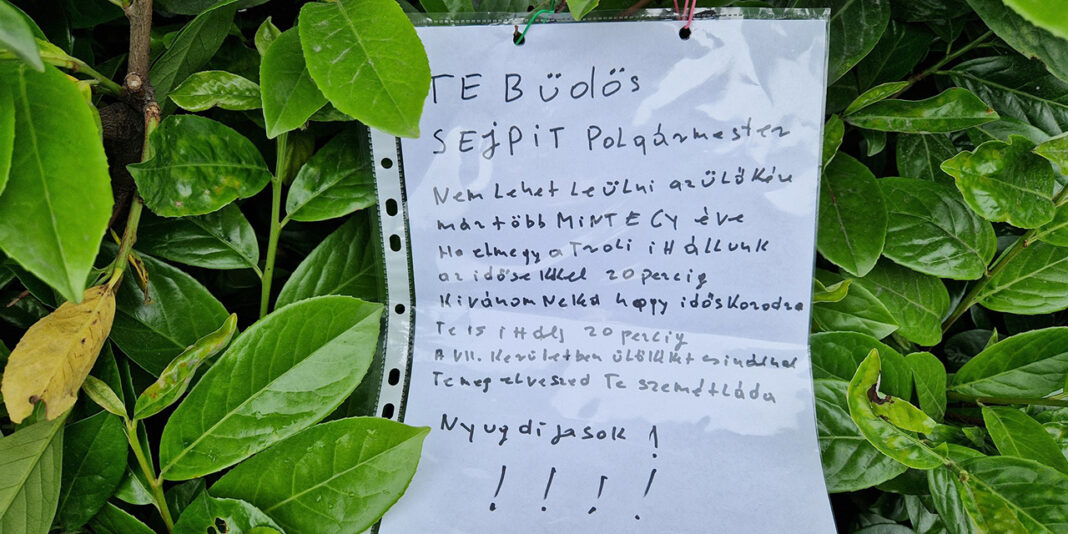 TE BÜDÖS
SEJPIT POLGÁRMESTER
Nem Lehet Leülni az ÜLŐKére
már több MINT EGY éve
Ha elmegy a Troli itt ÁLLunk
az idősekkel 20 percig
Kívánom Neked hogy időskorodra
Te is itt állj 20 percig
A VII. Kerületben ülőkéket csinálnak
Te meg elveszed Te szemétláda
Nyugdijasok !
! ! ! !